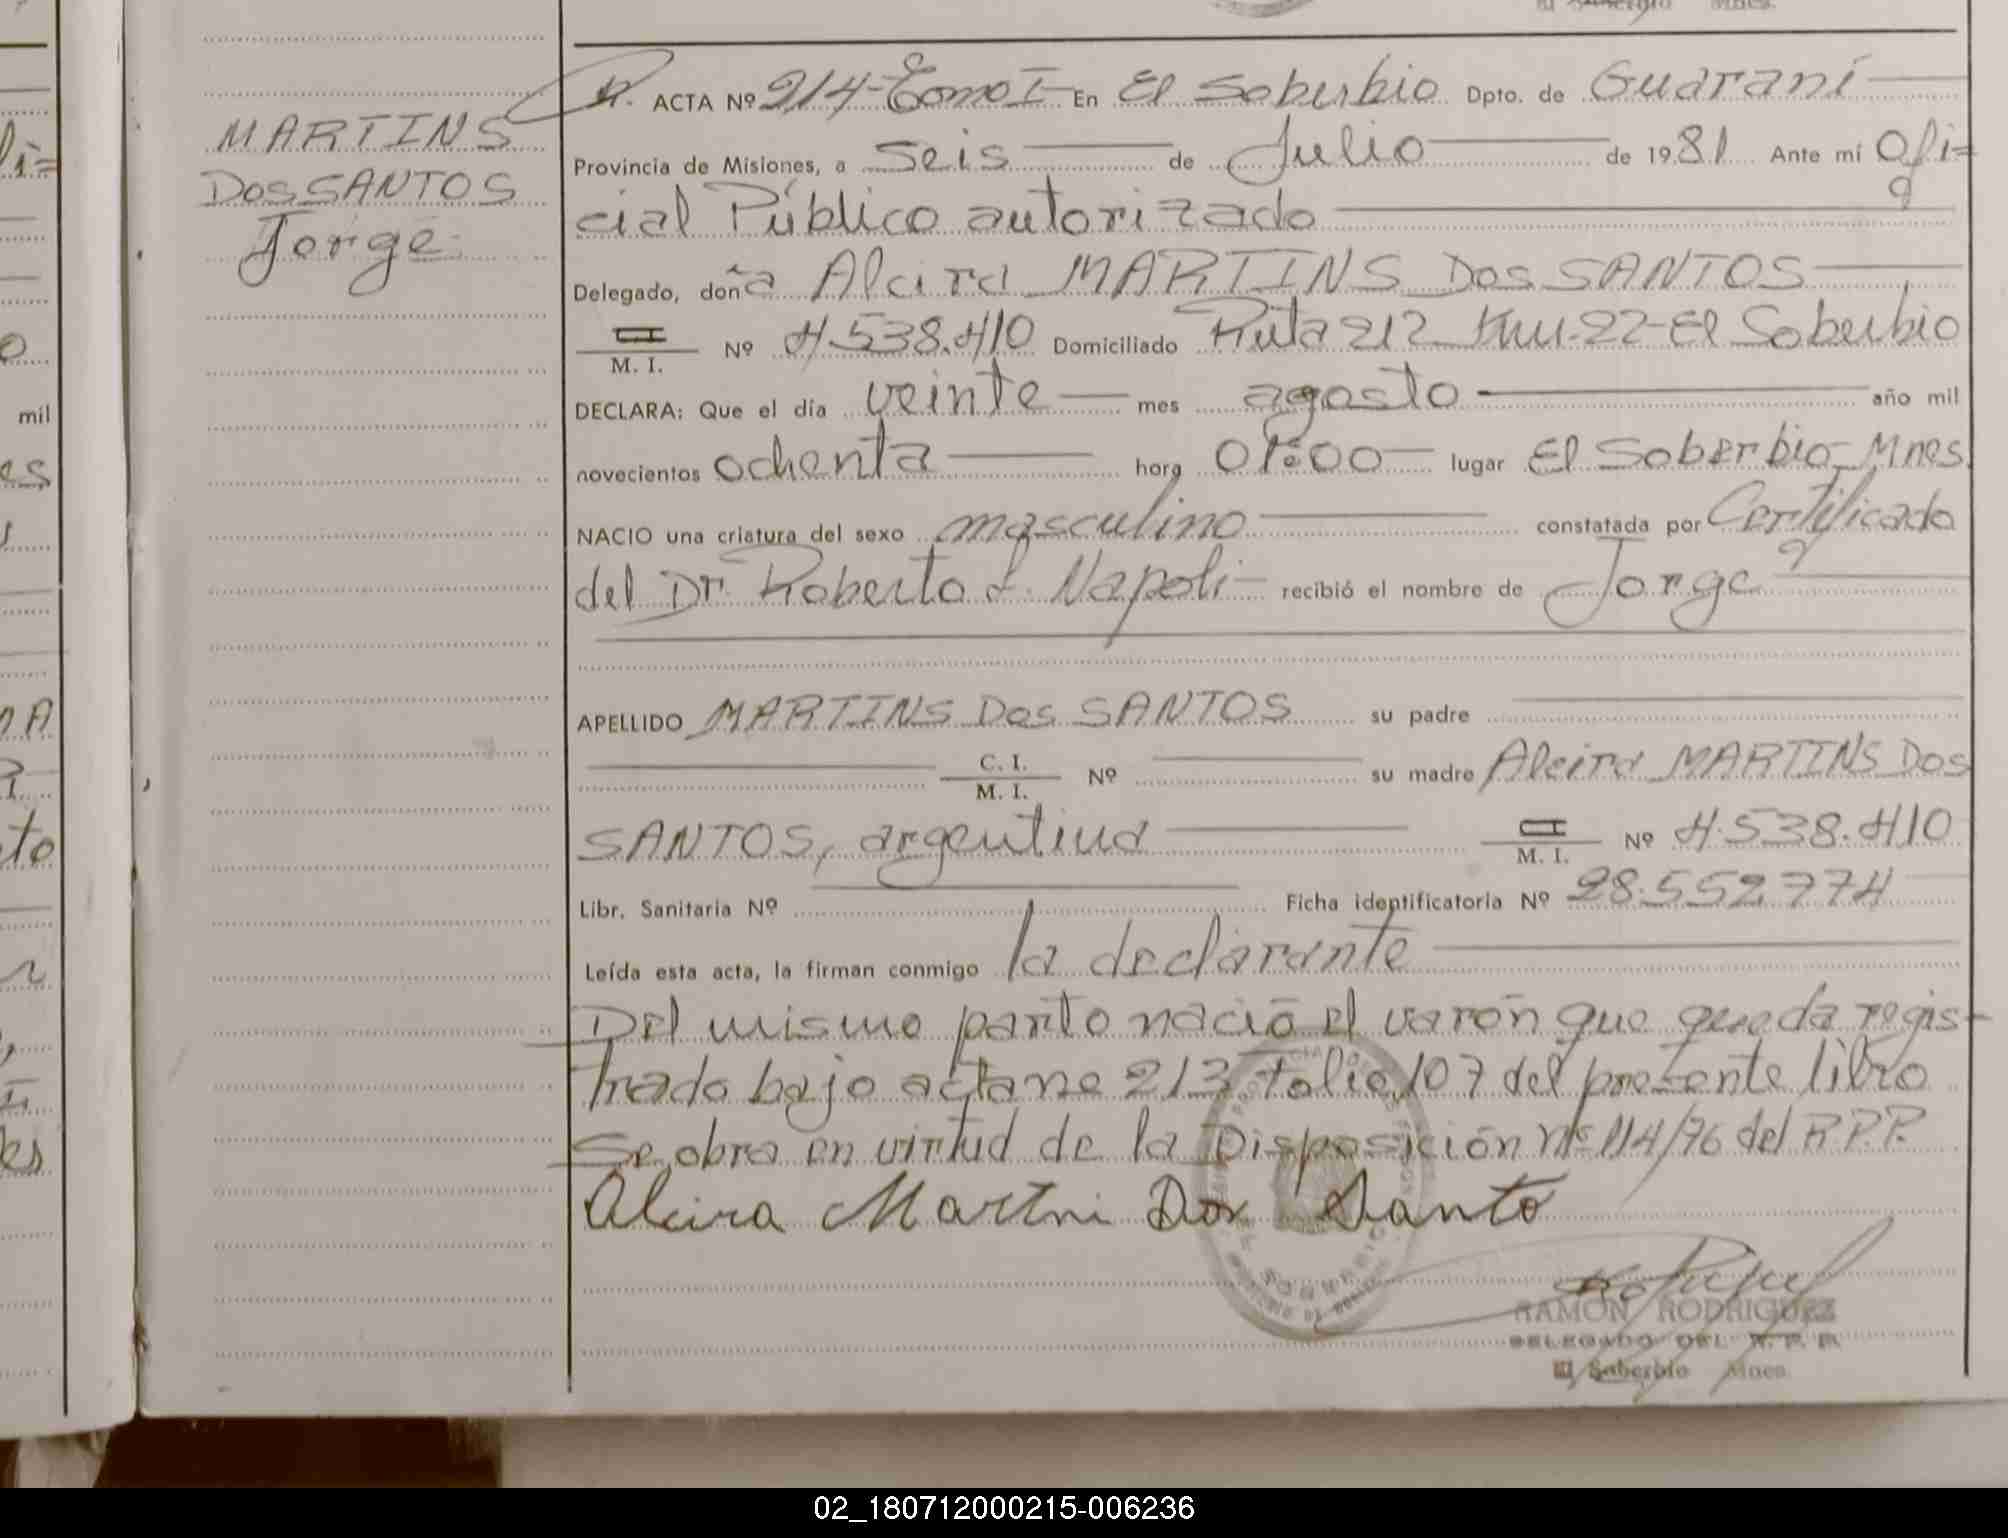 El Soberbio Mnes.
MARTINS
DOS SANTOS
Jorge
ACTA Nº 214-Tomo I En El Soberbio Dpto. de Guaraní
Provincia de Misiones, a seis de Julio de 1981 Ante mí Ofi=
cial Público autorizado
Delegado, doña Alcira MARTINS DOS SANTOS
C.I.
M. I. Nº 4.538.410 Domiciliado Ruta 212 Km.22-El Soberbio
DECLARA: Que el día veinte mes agosto año mil
novecientos ochenta hora 01:00 lugar El Soberbio-Mnes
NACIO una criatura del sexo masculino constatada por Certificado
del Dr. Roberto L. Napoli recibió el nombre de Jorge
APELLIDO MARTINS Dos SANTOS su padre
C. I.
M. I. Nº su madre Alcira MARTINS DOS
SANTOS, argentina M. I. Nº 4.538.410
Libr. Sanitaria Nº Ficha identificatoria Nº 28.552.774
Leída esta acta, la firman conmigo la declarante
Del mismo parto nació el varón que queda regis-
trado bajo acta nº 213 folio 107 del presente libro
Se obra en virtud de la Disposición Nº 114/76 del R.P.P.
Alcira Martni Dos Santo
RAMON RODRIGUEZ
DELEGADO DEL R. P. P.
El Soberbio Mnes
mil
02_180712000215-006236